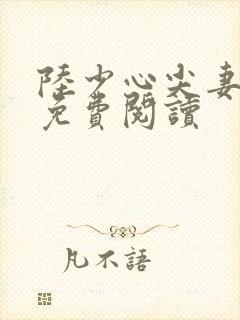 陸少心尖妻
免費閱讀
凡不語